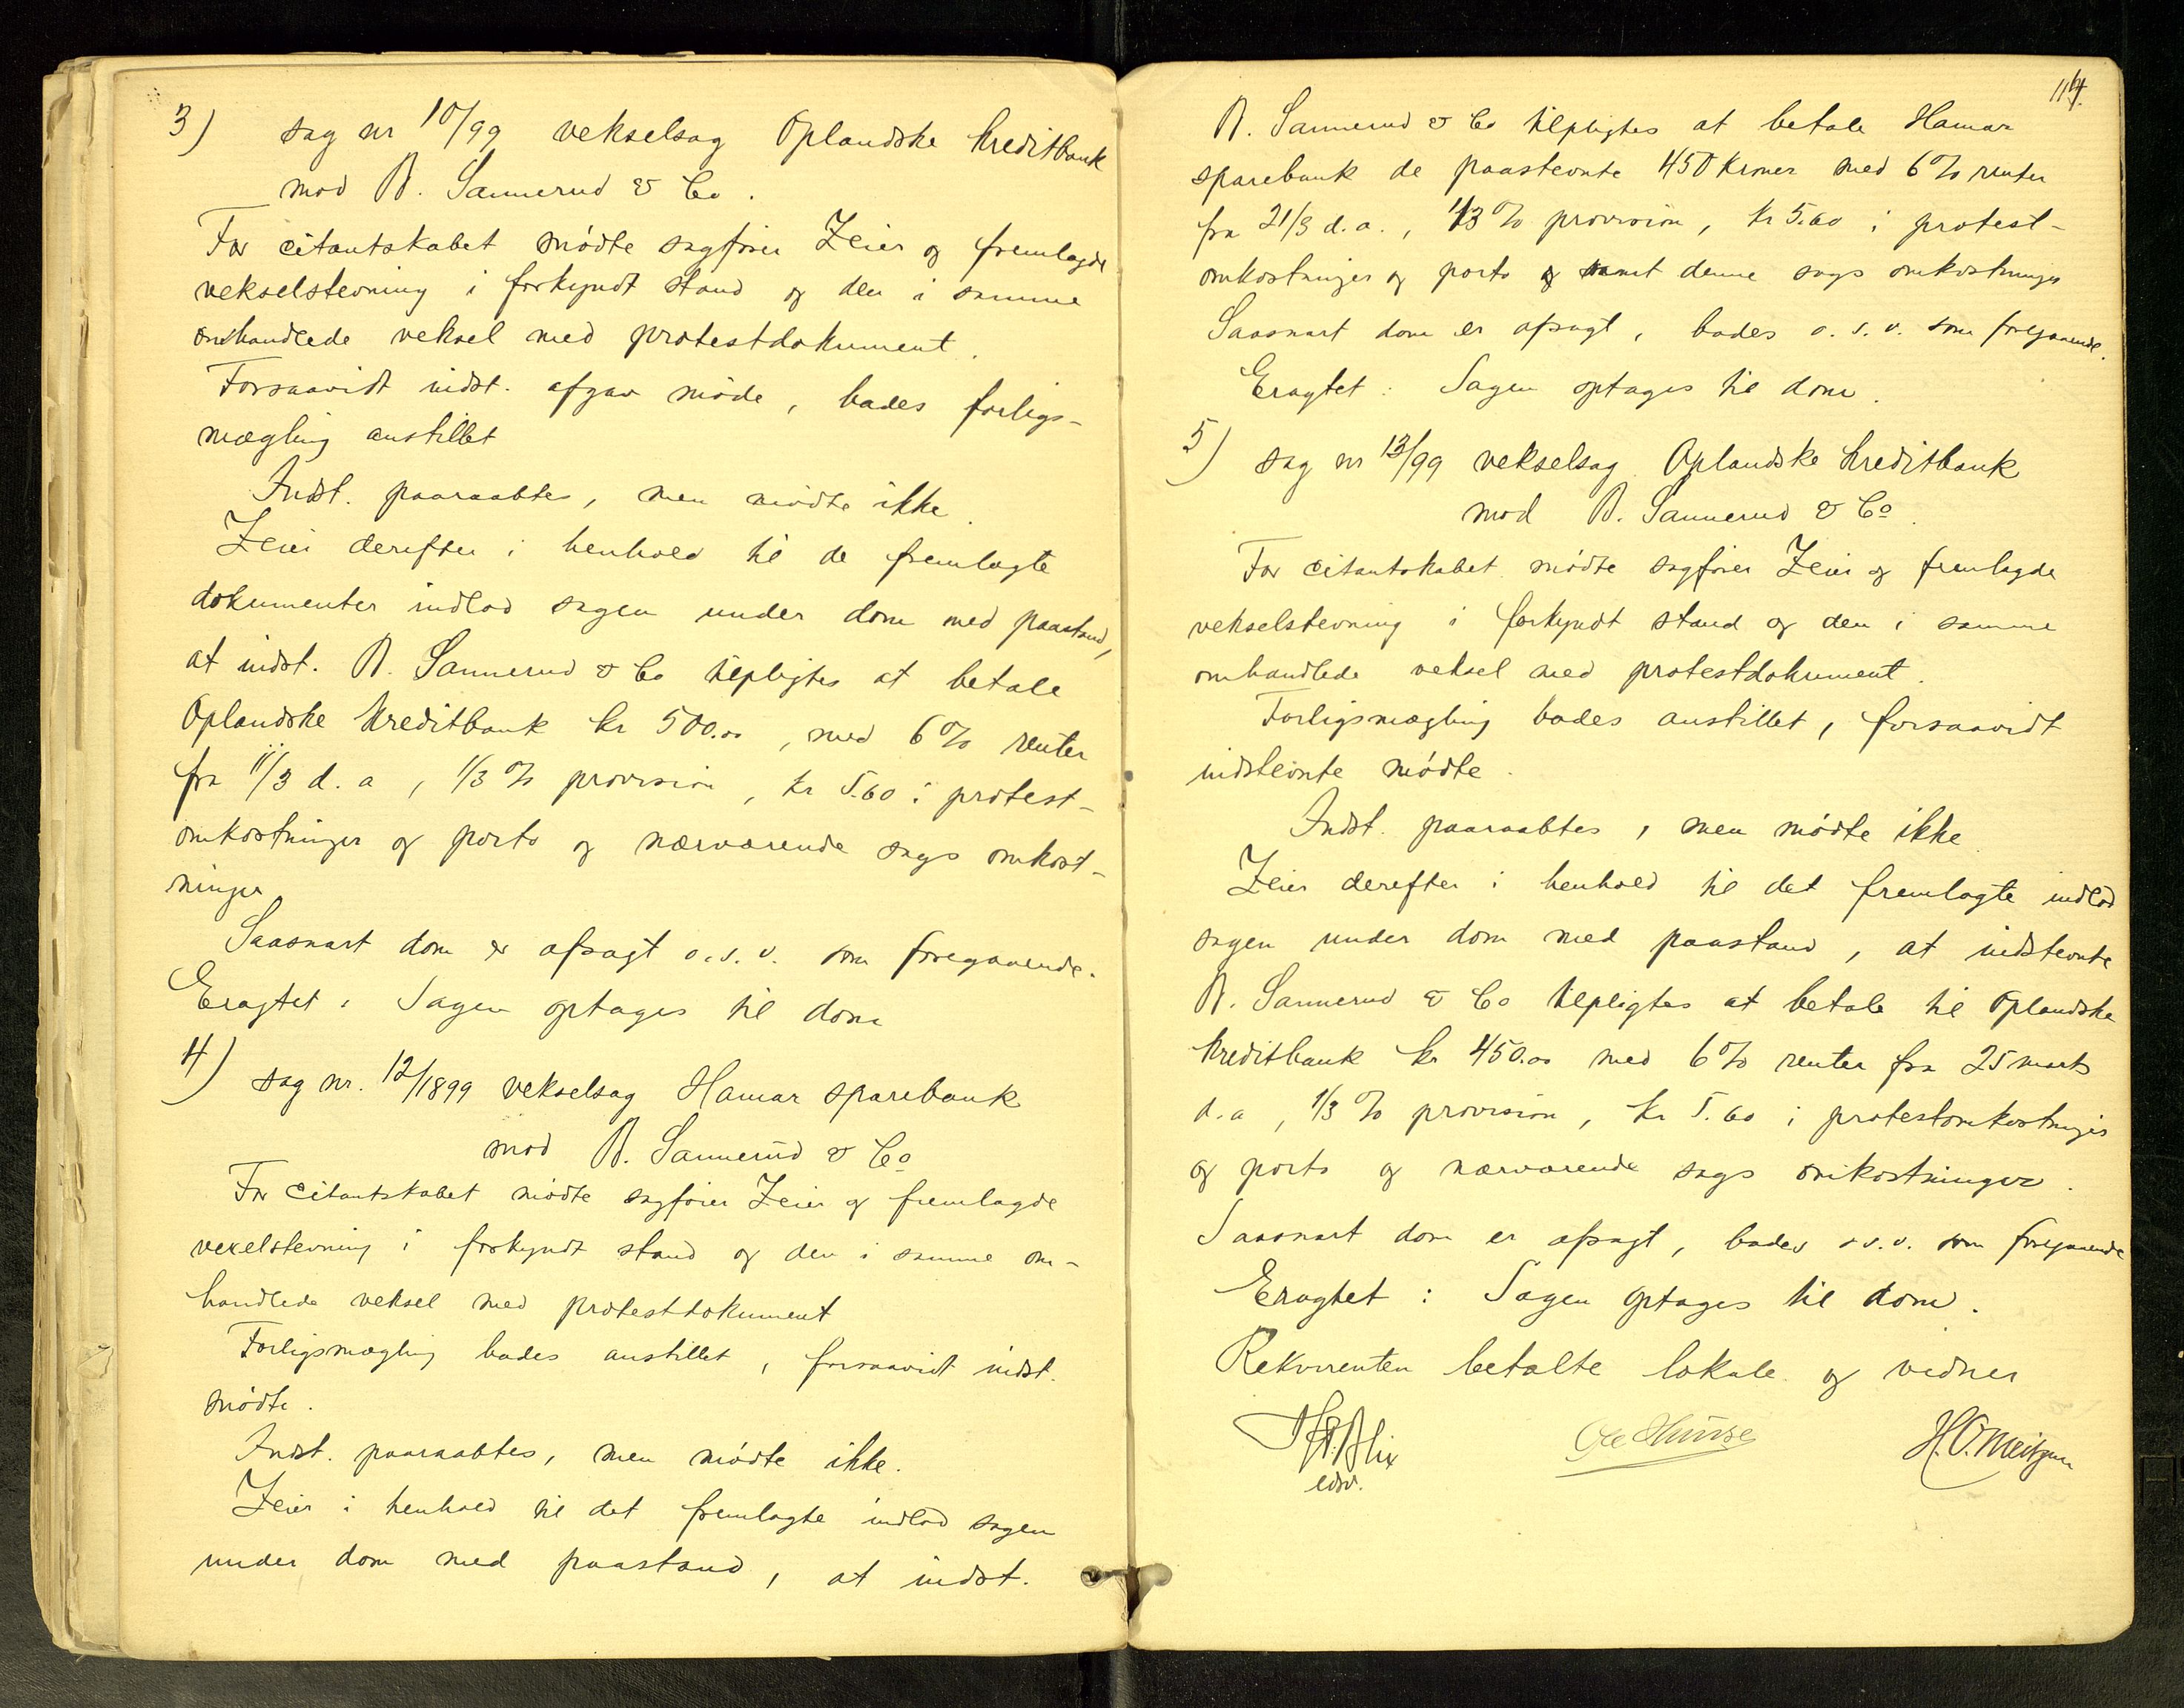 3) sag nr 10/99 vekselsag Oplandske Kreditbank
mod B. Sannerud & Co.
For citantskabet mødte sagfører Zeier og fremlagde
vekselstevning i forkyndt stand og den i samme
omhandlede veksel med protestdokument.
Forsaavidt indst. afgav møde, bades forligs-
mægling anstillet
Indst. paaraabtes, men mødte ikke.
Zeier derefter i henhold til de fremlagte
dokumenter indlod sagen under dom med paastand,
at indst. B. Sannerud & Co tilpligtes at betale
Oplandske Kreditbank kr 500.00, med 6% renter
fra 11/3 d. a, 1/3% provision, kr 5.60 i protest-
omkostninger og porto og nærværende sags omkost-
ninger
Saasnart dom er afsagt o.s.v. som foregaaende.
Eragtet: Sagen optages til dom
4) sag nr. 12/1899 vekselsag Hamar sparebank
mod B. Sannerud & Co
For citantskabet mødte sagfører Zeier og fremlagde
vexelstevning i forkyndt stand og den i samme om-
handlede veksel med protestdokument
Forligsmægling bades anstillet, forsaavidt indst.
mødte.
Indst. paaraabtes, men mødte ikke.
Zeier i henhold til det fremlagte indlod sagen
under dom med paastand, at indst.
114.
B. Sannerud & Co tilpligtes at betale Hamar
sparebank de paastevnte 450 kroner med 6% renter
fra 21/3 d. a., 1/3% provision, kr 5.60 i protest-
omkostninger og porto samt denne sags omkostninger
Saasnart dom er afsagt, bades o. s. v. som foregaaende.
Eragtet: Sagen optages til dom.
5) sag nr 13/99 vekselsag Oplandske Kreditbank
mod B. Sannerud & Co.
For citantskabet mødte sagfører Zeier og fremlagde
vekselstevning i forkyndt stand og den i samme
omhandlede veksel med protestdokument.
Forligsmægling bades anstillet, forsaavidt
indstevnte mødte.
Indst. paaraabtes, men mødte ikke.
Zeier derefter i henhold til det fremlagte indlod
sagen under dom med paastand, at indstevnte
B. Sannerud & Co tilpligtes at betale til Oplandske
Kreditbank kr 450.00 med 6% renter fra 25 marts
d. a, 1/3% provision, kr 5.60 i protestomkostninger
og porto og nærværende sags omkostninger.
Saasnart dom er afsagt, bades o.s.v. som foregaaende
Eragtet: Sagen optages til dom.
Rekvirenten betalte lokale og vidner
Blix
edsv.
H. O.